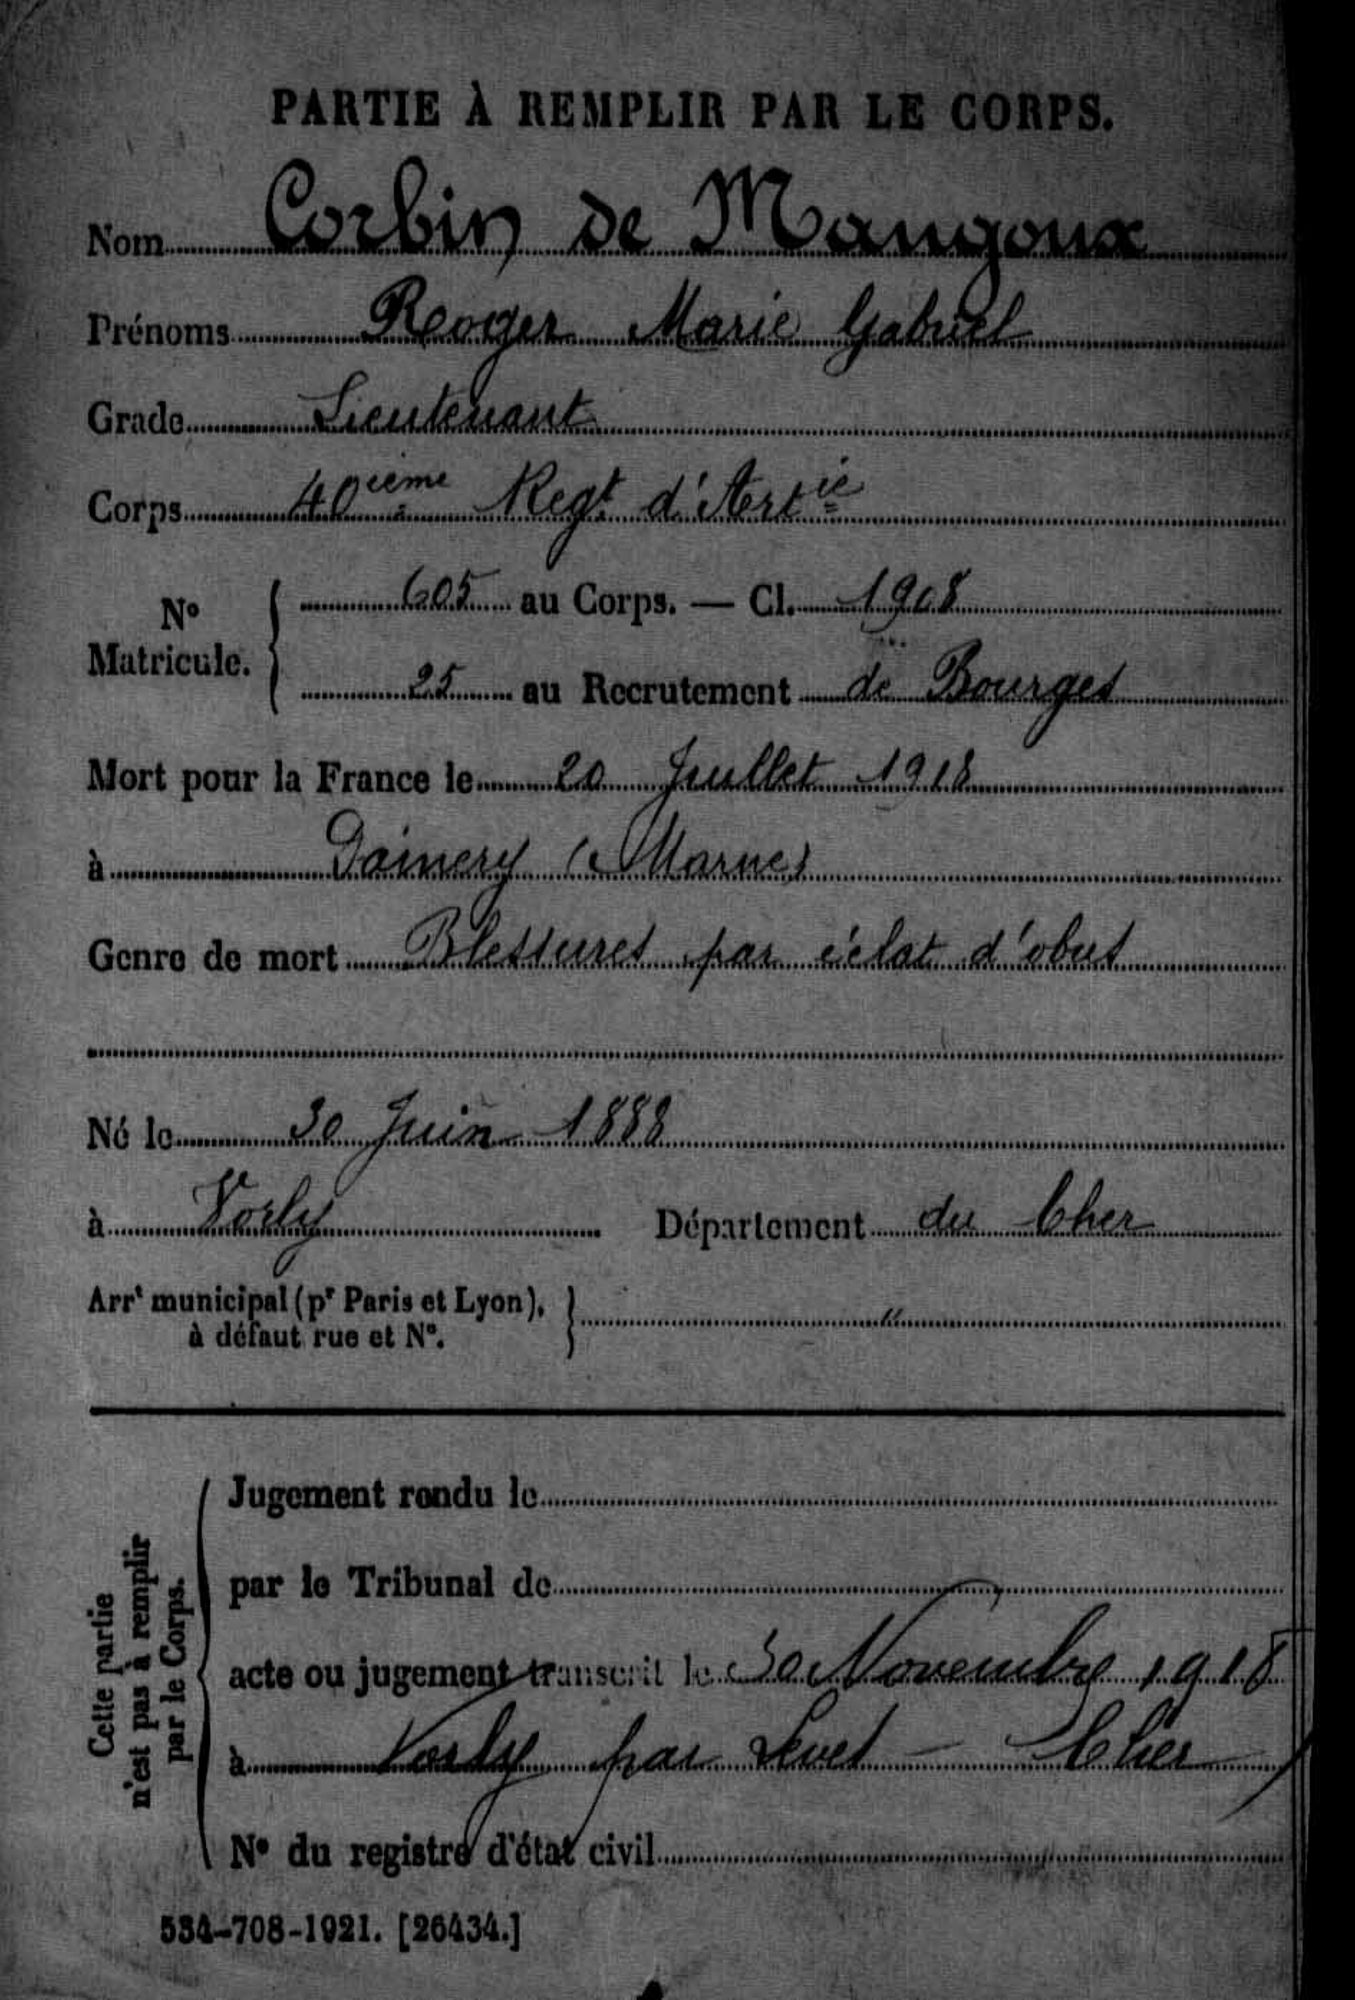 PARTIE À REMPLIR PAR LE CORPS.
Nom Corbin de Mangoux
Prénoms Roger Marie Gabriel
Grade Lieutenant
Corps 40ième Regt d'Artie
No Matricule. 605 au Corps. — Cl. 1908
25 au Recrutement de Bourges
Mort pour la France le 20 Juillet 1918
à Damery (Marne)
Genre de mort Blessures par éclat d'obus
Né le 30 Juin 1888
à Vorly Département du Cher
Arrt municipal (pr Paris et Lyon), "
à défaut rue et No.
Cette partie n'est pas à remplir par le Corps.
Jugement rendu le
par le Tribunal de
acte ou jugement transcrit le 30 Novembre 1918
à Vorly par Levet - Cher
No du registre d'état civil
534-708-1921. [26434.]